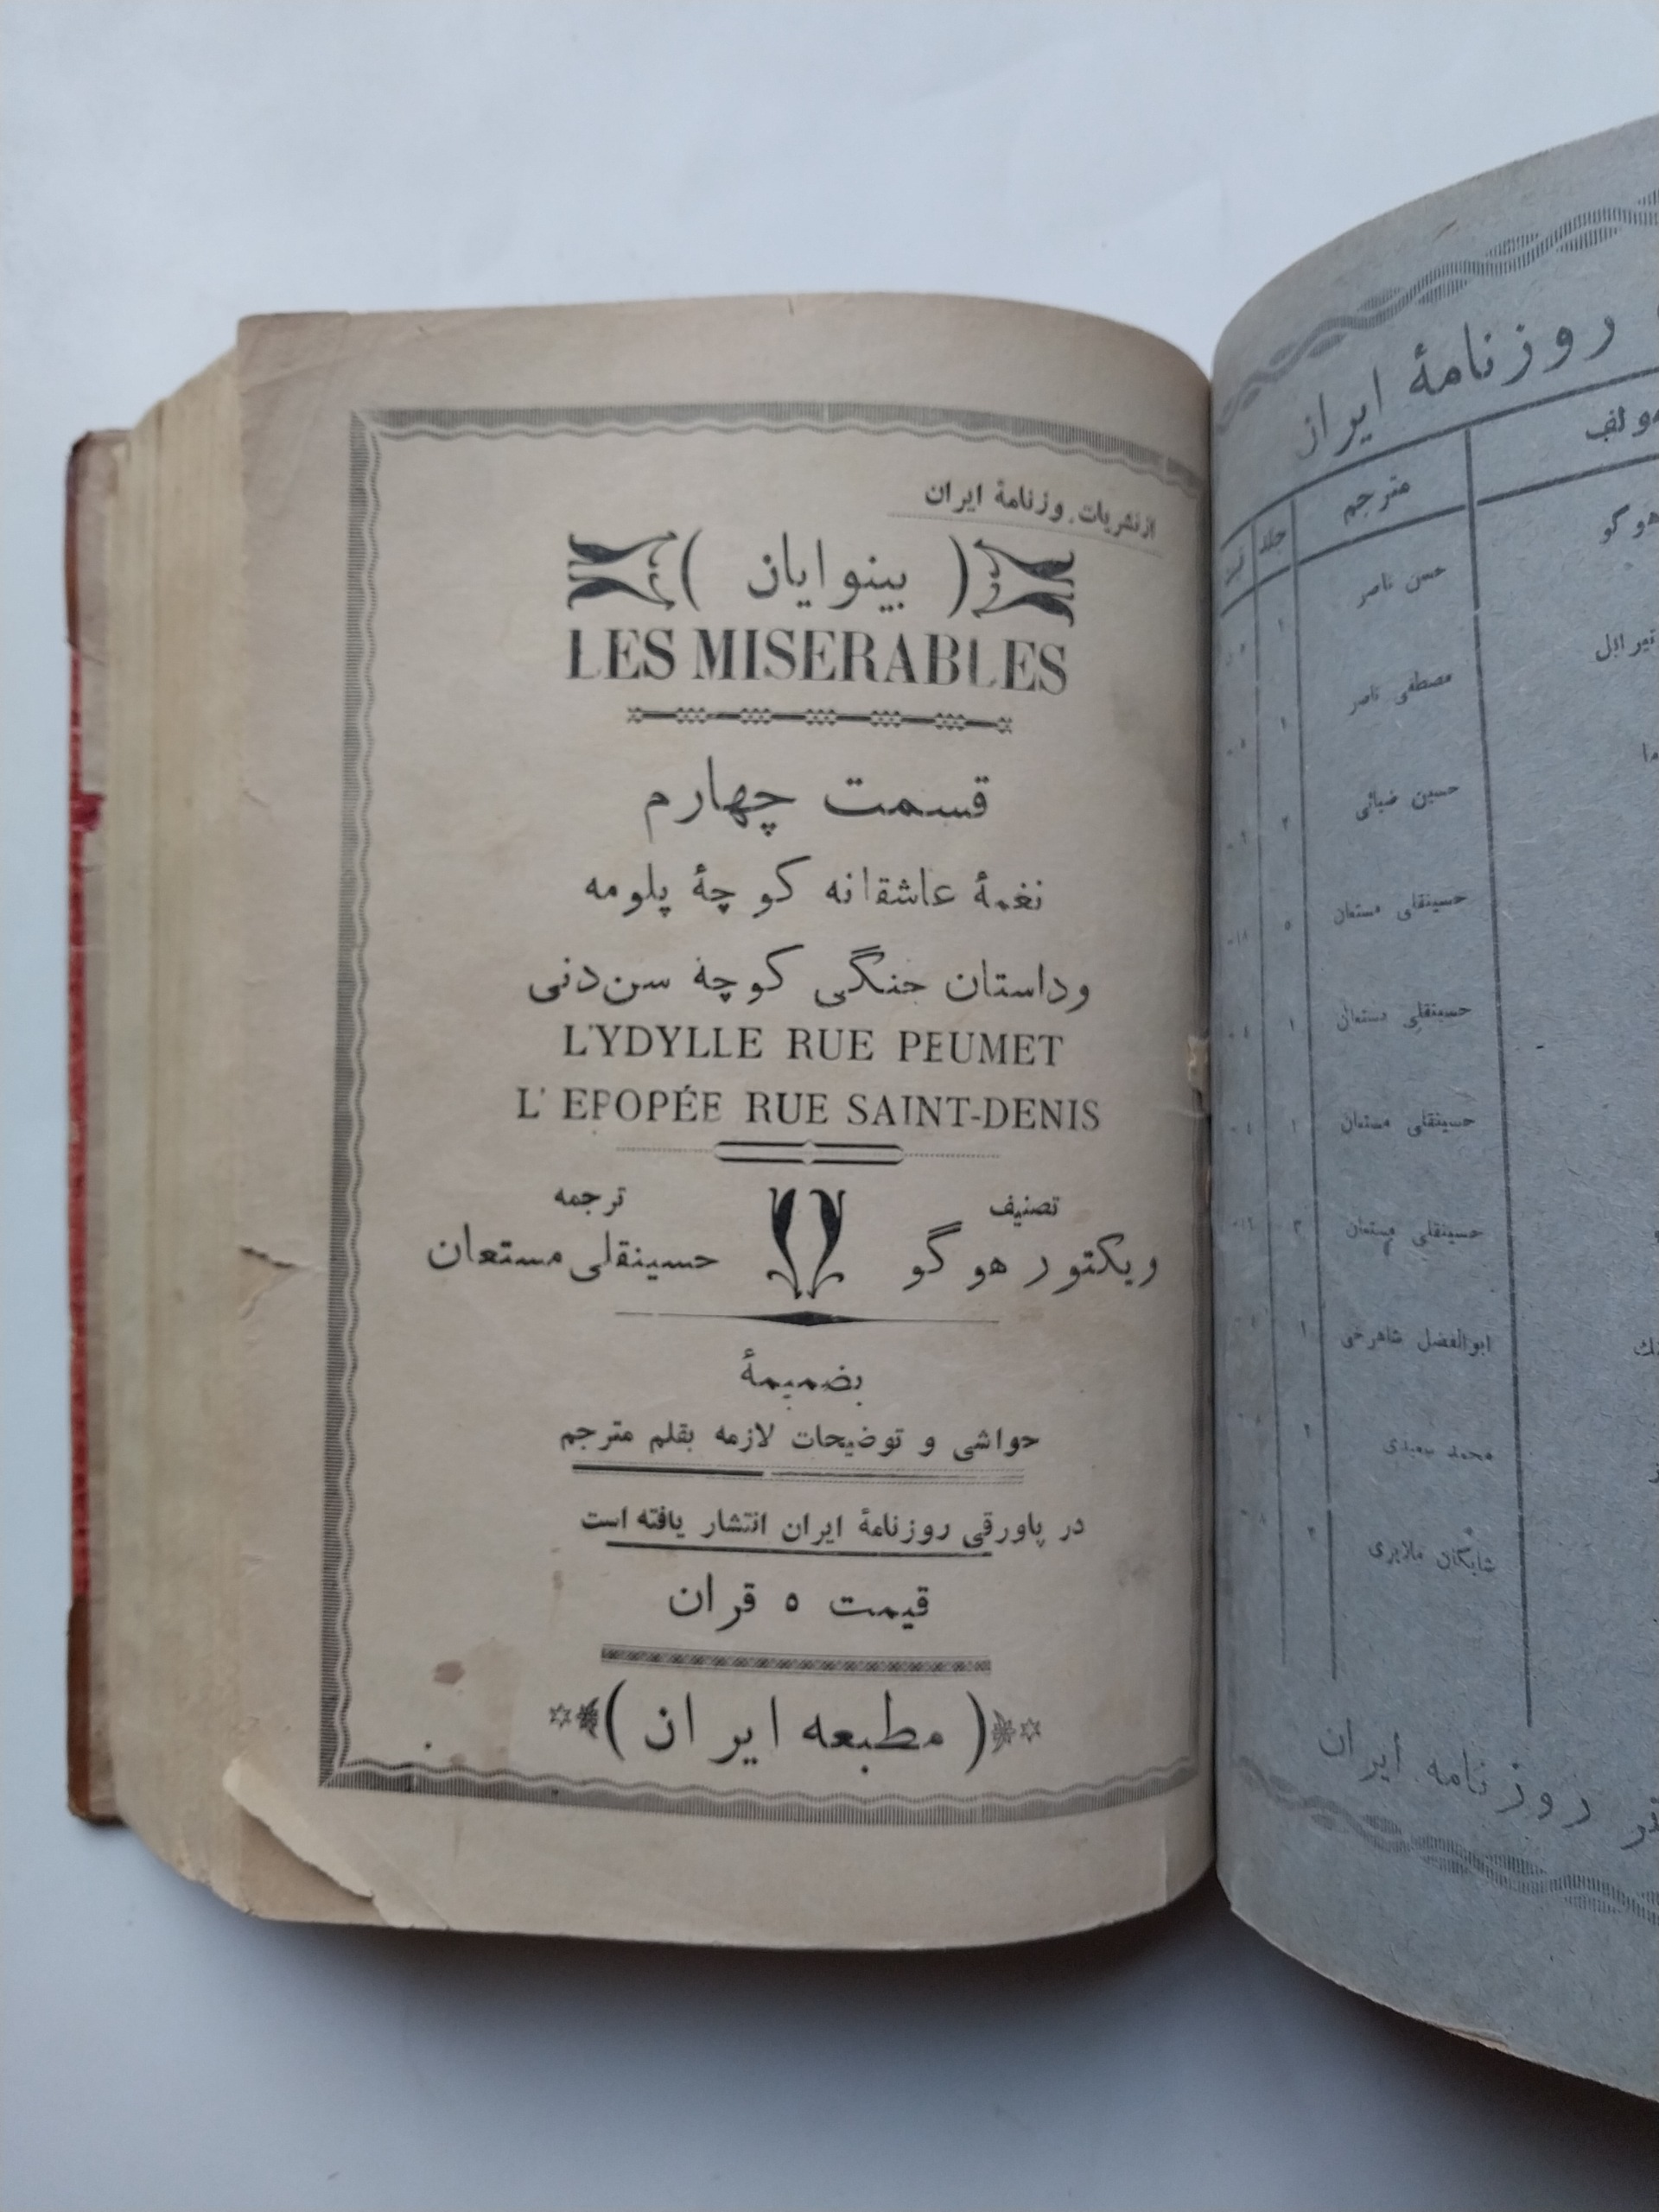 از نشریات روزنامهٔ ایران
( بینوایان )
LES MISERABLES
قسمت چهارم
نغمهٔ عاشقانه کوچهٔ پلومه
وداستان جنگی کوچهٔ سن‌دنی
L'YDYLLE RUE PEUMET
L' EPOPÉE RUE SAINT-DENIS
تصنیف
ویکتور هوگو
ترجمه
حسینقلی مستعان
بضمیمهٔ
حواشی و توضیحات لازمه بقلم مترجم
در پاورقی روزنامهٔ ایران انتشار یافته است
قیمت ٥ قران
( مطبعه ایران )
روزنامهٔ ایران
مترجم
جلد
هوگو
حسن ناصر
۱
مصطفی ناصر
۱
حسین ضیائی
۲
حسینقلی مستعان
٥
حسینقلی مستعان
۱
حسینقلی مستعان
۱
حسینقلی مستعان
۳
ابوالفضل شاهرخی
۱
محمد سعیدی
۲
شایگان ملایری
۲
روزنامه ایران